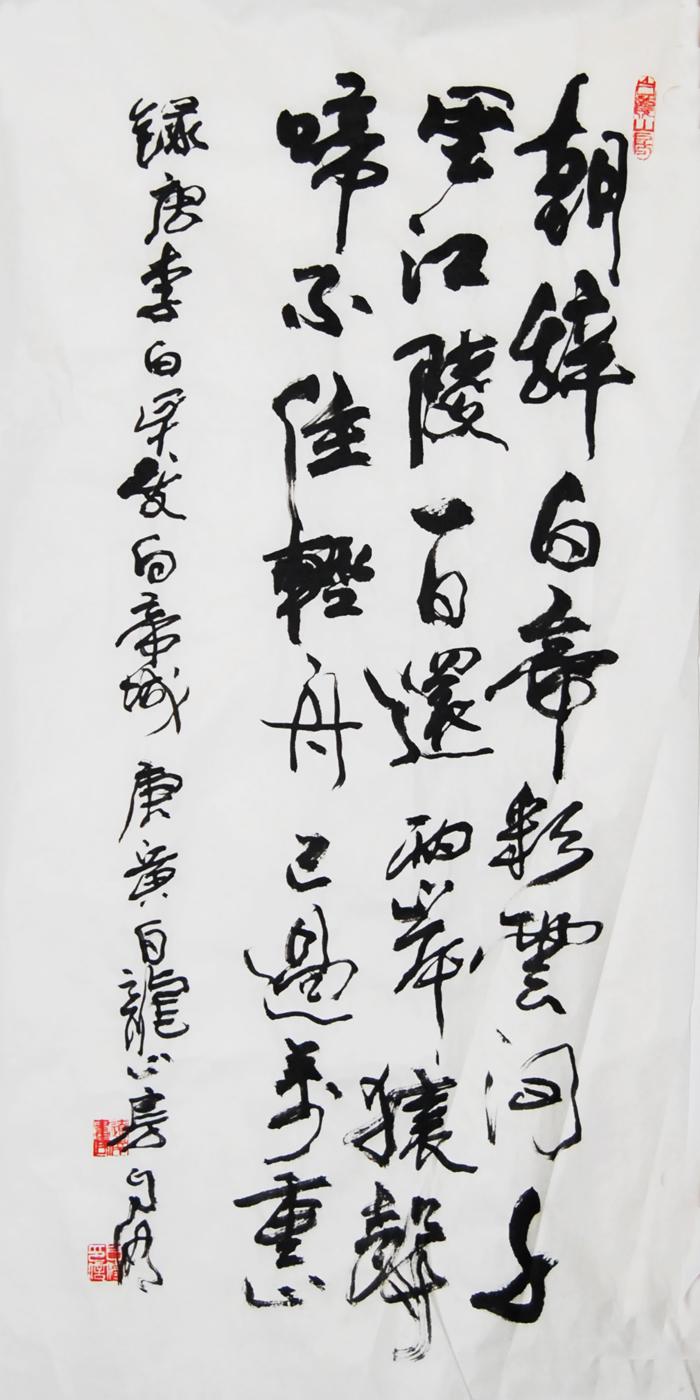 朝辭白帝彩雲间千
里江陵一日還兩岸猿聲
啼不住輕舟已過萬重山
録唐李白早發白帝城 庚寅白龍山房